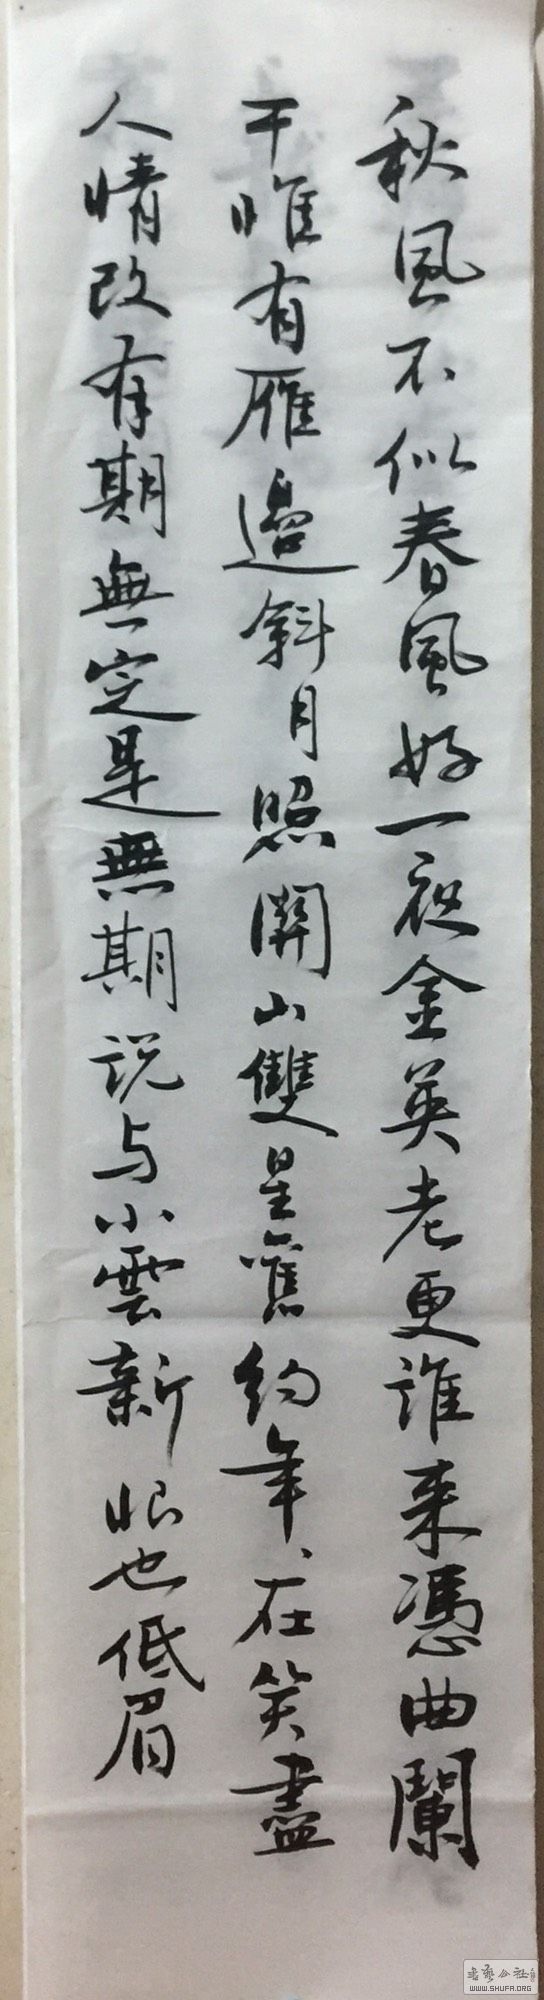 秋風不似春風好一夜金英老更誰来憑曲闌
干惟有雁邊斜月照関山雙星舊約年、在笑盡
人情改有期無定是無期説与小雲新恨也低眉
書藝公社
WWW.SHUFA.ORG